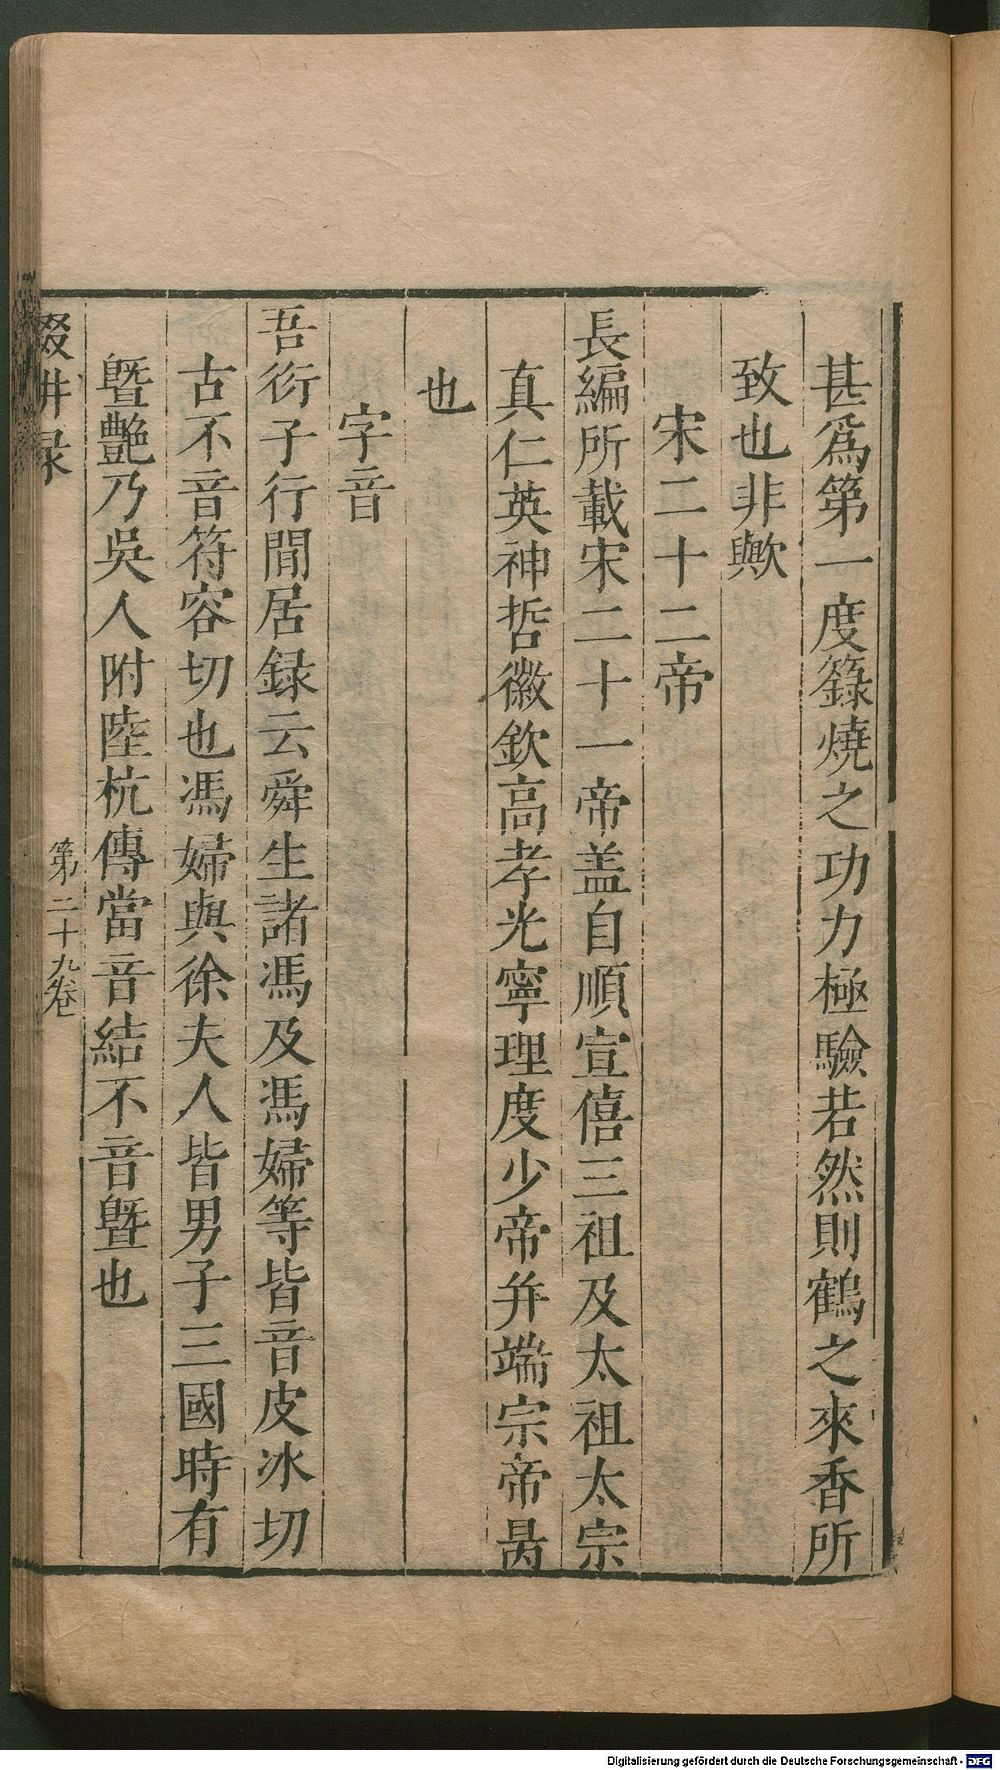 甚爲第一度籙燒之功力極驗若然則鶴之來香所
致也非歟
宋二十二帝
長編所載宋二十一帝盖自順宣僖三祖及太祖太宗
真仁英神哲徽欽高孝光寧理度少帝并端宗帝昺
也
字音
吾衍子行閒居録云舜生諸馮及馮婦等皆音皮冰切
古不音符容切也馮婦與徐夫人皆男子三國時有
曁艷乃吳人附陸杭傳當音結不音曁也
輟畊录
第二十九卷
Digitalisierung gefördert durch die Deutsche Forschungsgemeinschaft - DFG